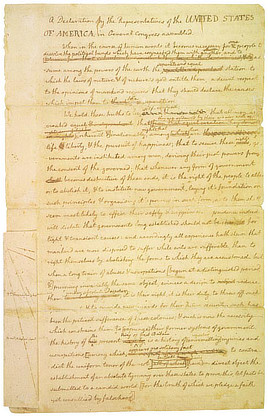 A Declaration by the Representatives of the UNITED STATES
OF AMERICA, in General Congress assembled.
When in the course of human events it becomes necessary for people to
dissolve the political bands which have connected them with another, and to
assume among the powers of the earth the station to
which the laws of nature & of nature's god entitle them, a decent respect
to the opinions of mankind requires that they should declare the causes
which impel them to the separation.
We hold these truths to be that all men are
created equal
life, & liberty, & the pursuit of happiness; that to secure these, go-
vernments are instituted among men, deriving their just powers from
the consent of the governed; that whenever any form of government
becomes destructive of these ends, it is the right of the people to alter
or to abolish it, & to institute new government, laying it's foundation on
such principles & organising it's powers in such form, as to them shall
seem most likely to effect their safety & happiness. prudence indeed
will dictate that governments long established should not be changed for
light & transient causes: and accordingly all experience hath shewn that
mankind are more disposed to suffer while evils are sufferable, than to
right themselves by abolishing the forms to which they are accustomed. but
when a long train of abuses & usurpations [begun at a distinguished period
& pursuing invariably the same object, evinces a design to
them it is their right, it is their duty, to throw off such
been the patient sufferance of these colonies; & such is now the necessity
which constrains them to their former systems of government.
the history of present is a history of injuries and
usurpations, among which to contra-
dict the uniform tenor of the rest
establishment of an absolute tyranny over these states. to prove this let facts be
submitted to a candid world [for the truth of which we pledge a faith
yet unsullied by falsehood]